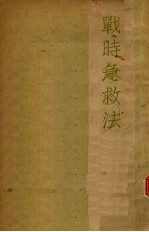 戰時急救法